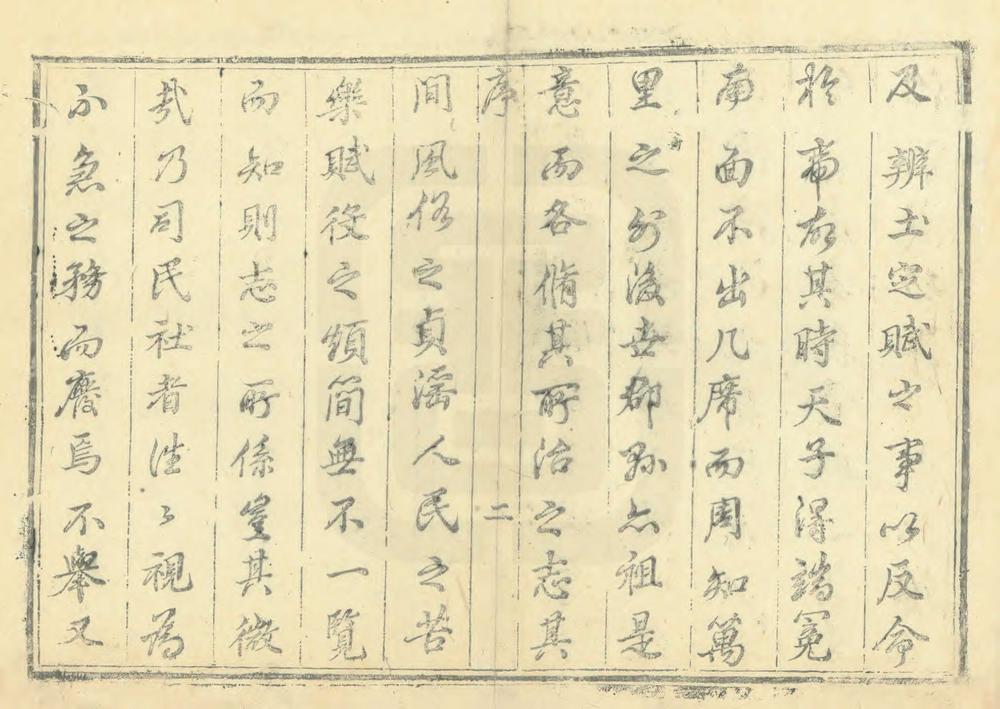 及辨土定賦之事以反命
於帝故其時天子得端冕
南面不出几席而周知萬
里之外後世郡縣亦祖是
意而各脩其所治之志其
序 二
間風俗之貞滛人民之苦
樂賦役之煩簡無不一覽
而知則志之所係豈其微
哉乃司民社者徃〻視為
不急之務而廢焉不舉又